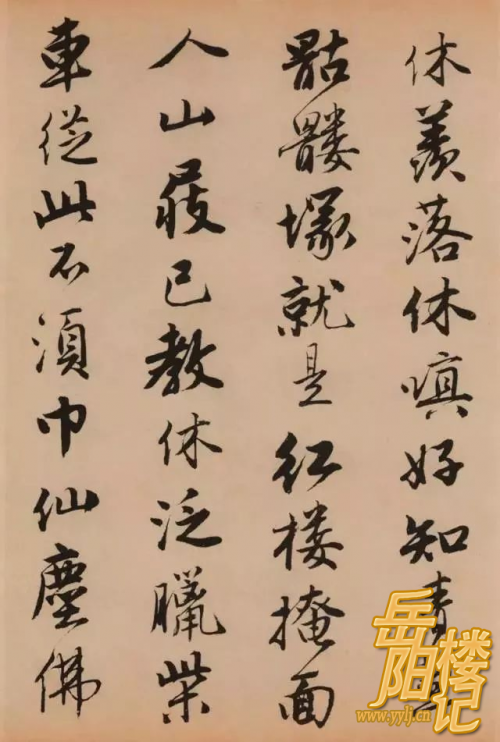 休羨落休嗔好知青
骷髅塚就是紅楼掩面
人山屐已教休泛臘柴
車從此不須巾仙塵佛
岳阳楼记
www.yylj.cn